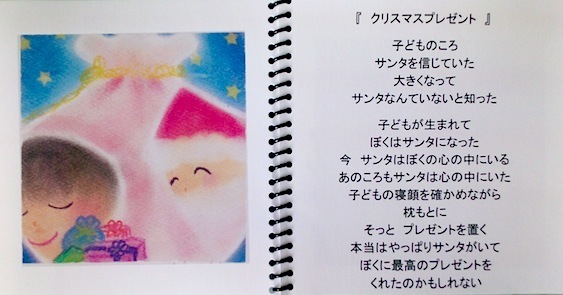 『 クリスマスプレゼント 』
子どものころ
サンタを信じていた
大きくなって
サンタなんていないと知った
子どもが生まれて
ぼくはサンタになった
今　サンタはぼくの心の中にいる
あのころもサンタは心の中にいた
子どもの寝顔を確かめながら
枕もとに
そっと　プレゼントを置く
本当はやっぱりサンタがいて
ぼくに最高のプレゼントを
くれたのかもしれない